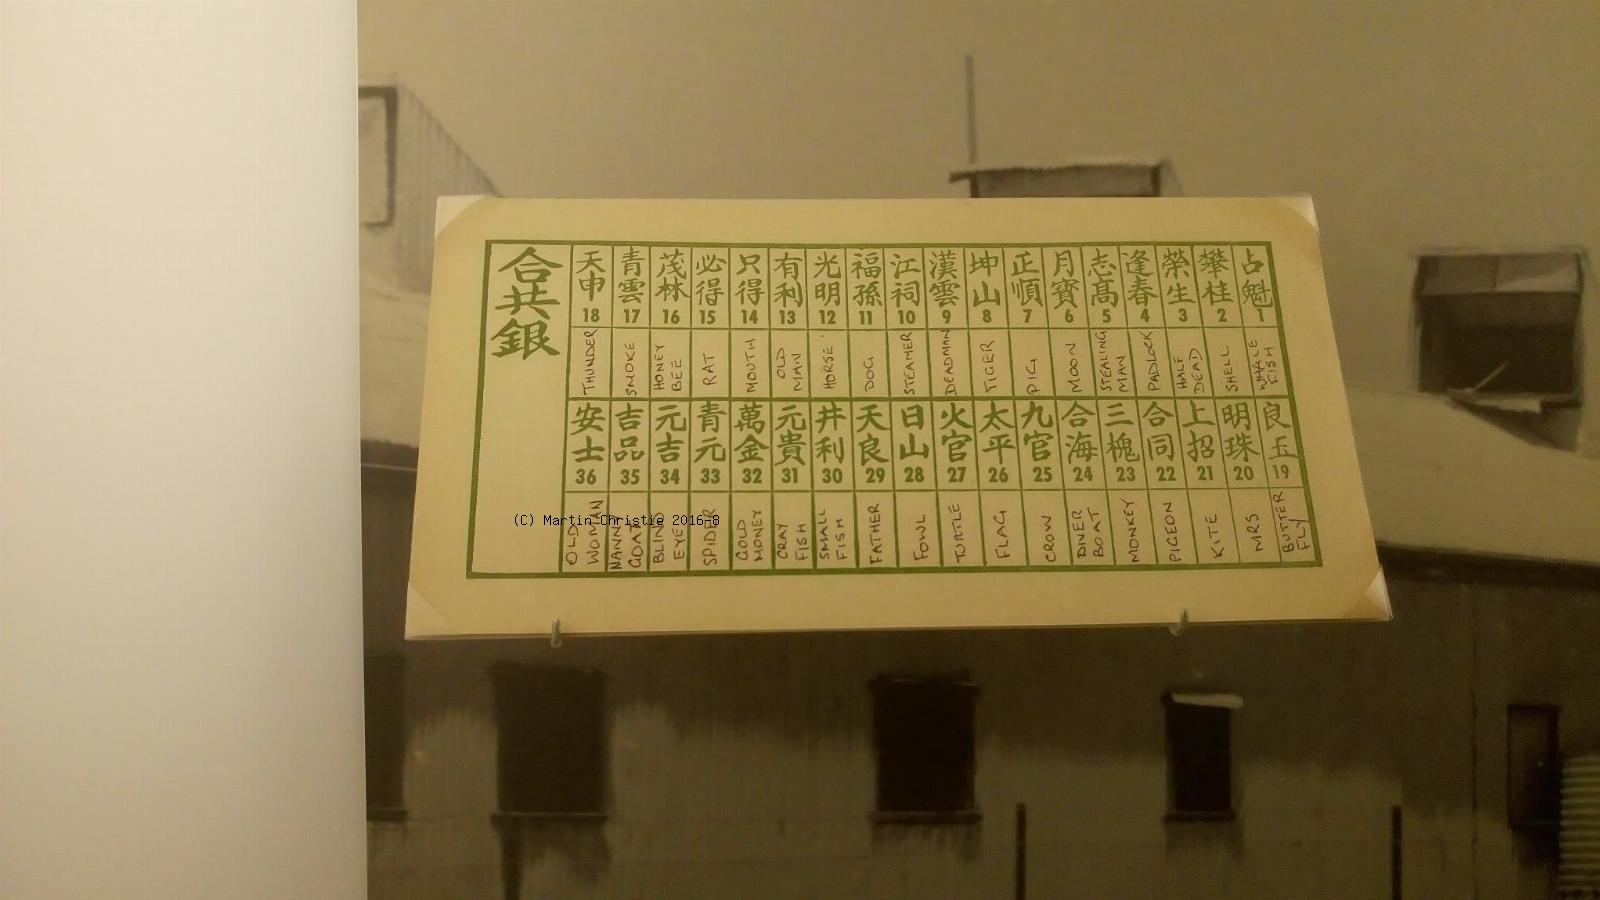 合共銀
天申 青雲 茂林 必得 只得 有利 光明 福孫 江祠 漢雲 坤山 正順 月寶 志高 逢春 榮生 攀桂 占魁
18 17 16 15 14 13 12 11 10 9 8 7 6 5 4 3 2 1
THUNDER SMOKE HONEY BEE RAT MOUTH OLD MAN HORSE DOG STEAMER DEADMAN TIGER PIG MOON STEALING MAN PADLOCK HALF DEAD SHELL WHALE FISH
安士 吉品 元吉 青元 萬金 元貴 井利 天良 日山 火官 太平 九官 合海 三槐 合同 上招 明珠 良玉
36 35 34 33 32 31 30 29 28 27 26 25 24 23 22 21 20 19
OLD WOMAN NANNY GOAT BLIND EYE SPIDER GOLD MONEY CRAY FISH SMALL FISH FATHER FOWL TURTLE FLAG CROW DIVER BOAT MONKEY PIGEON KITE MRS BUTTER FLY
(C) Martin Christie 2016-8